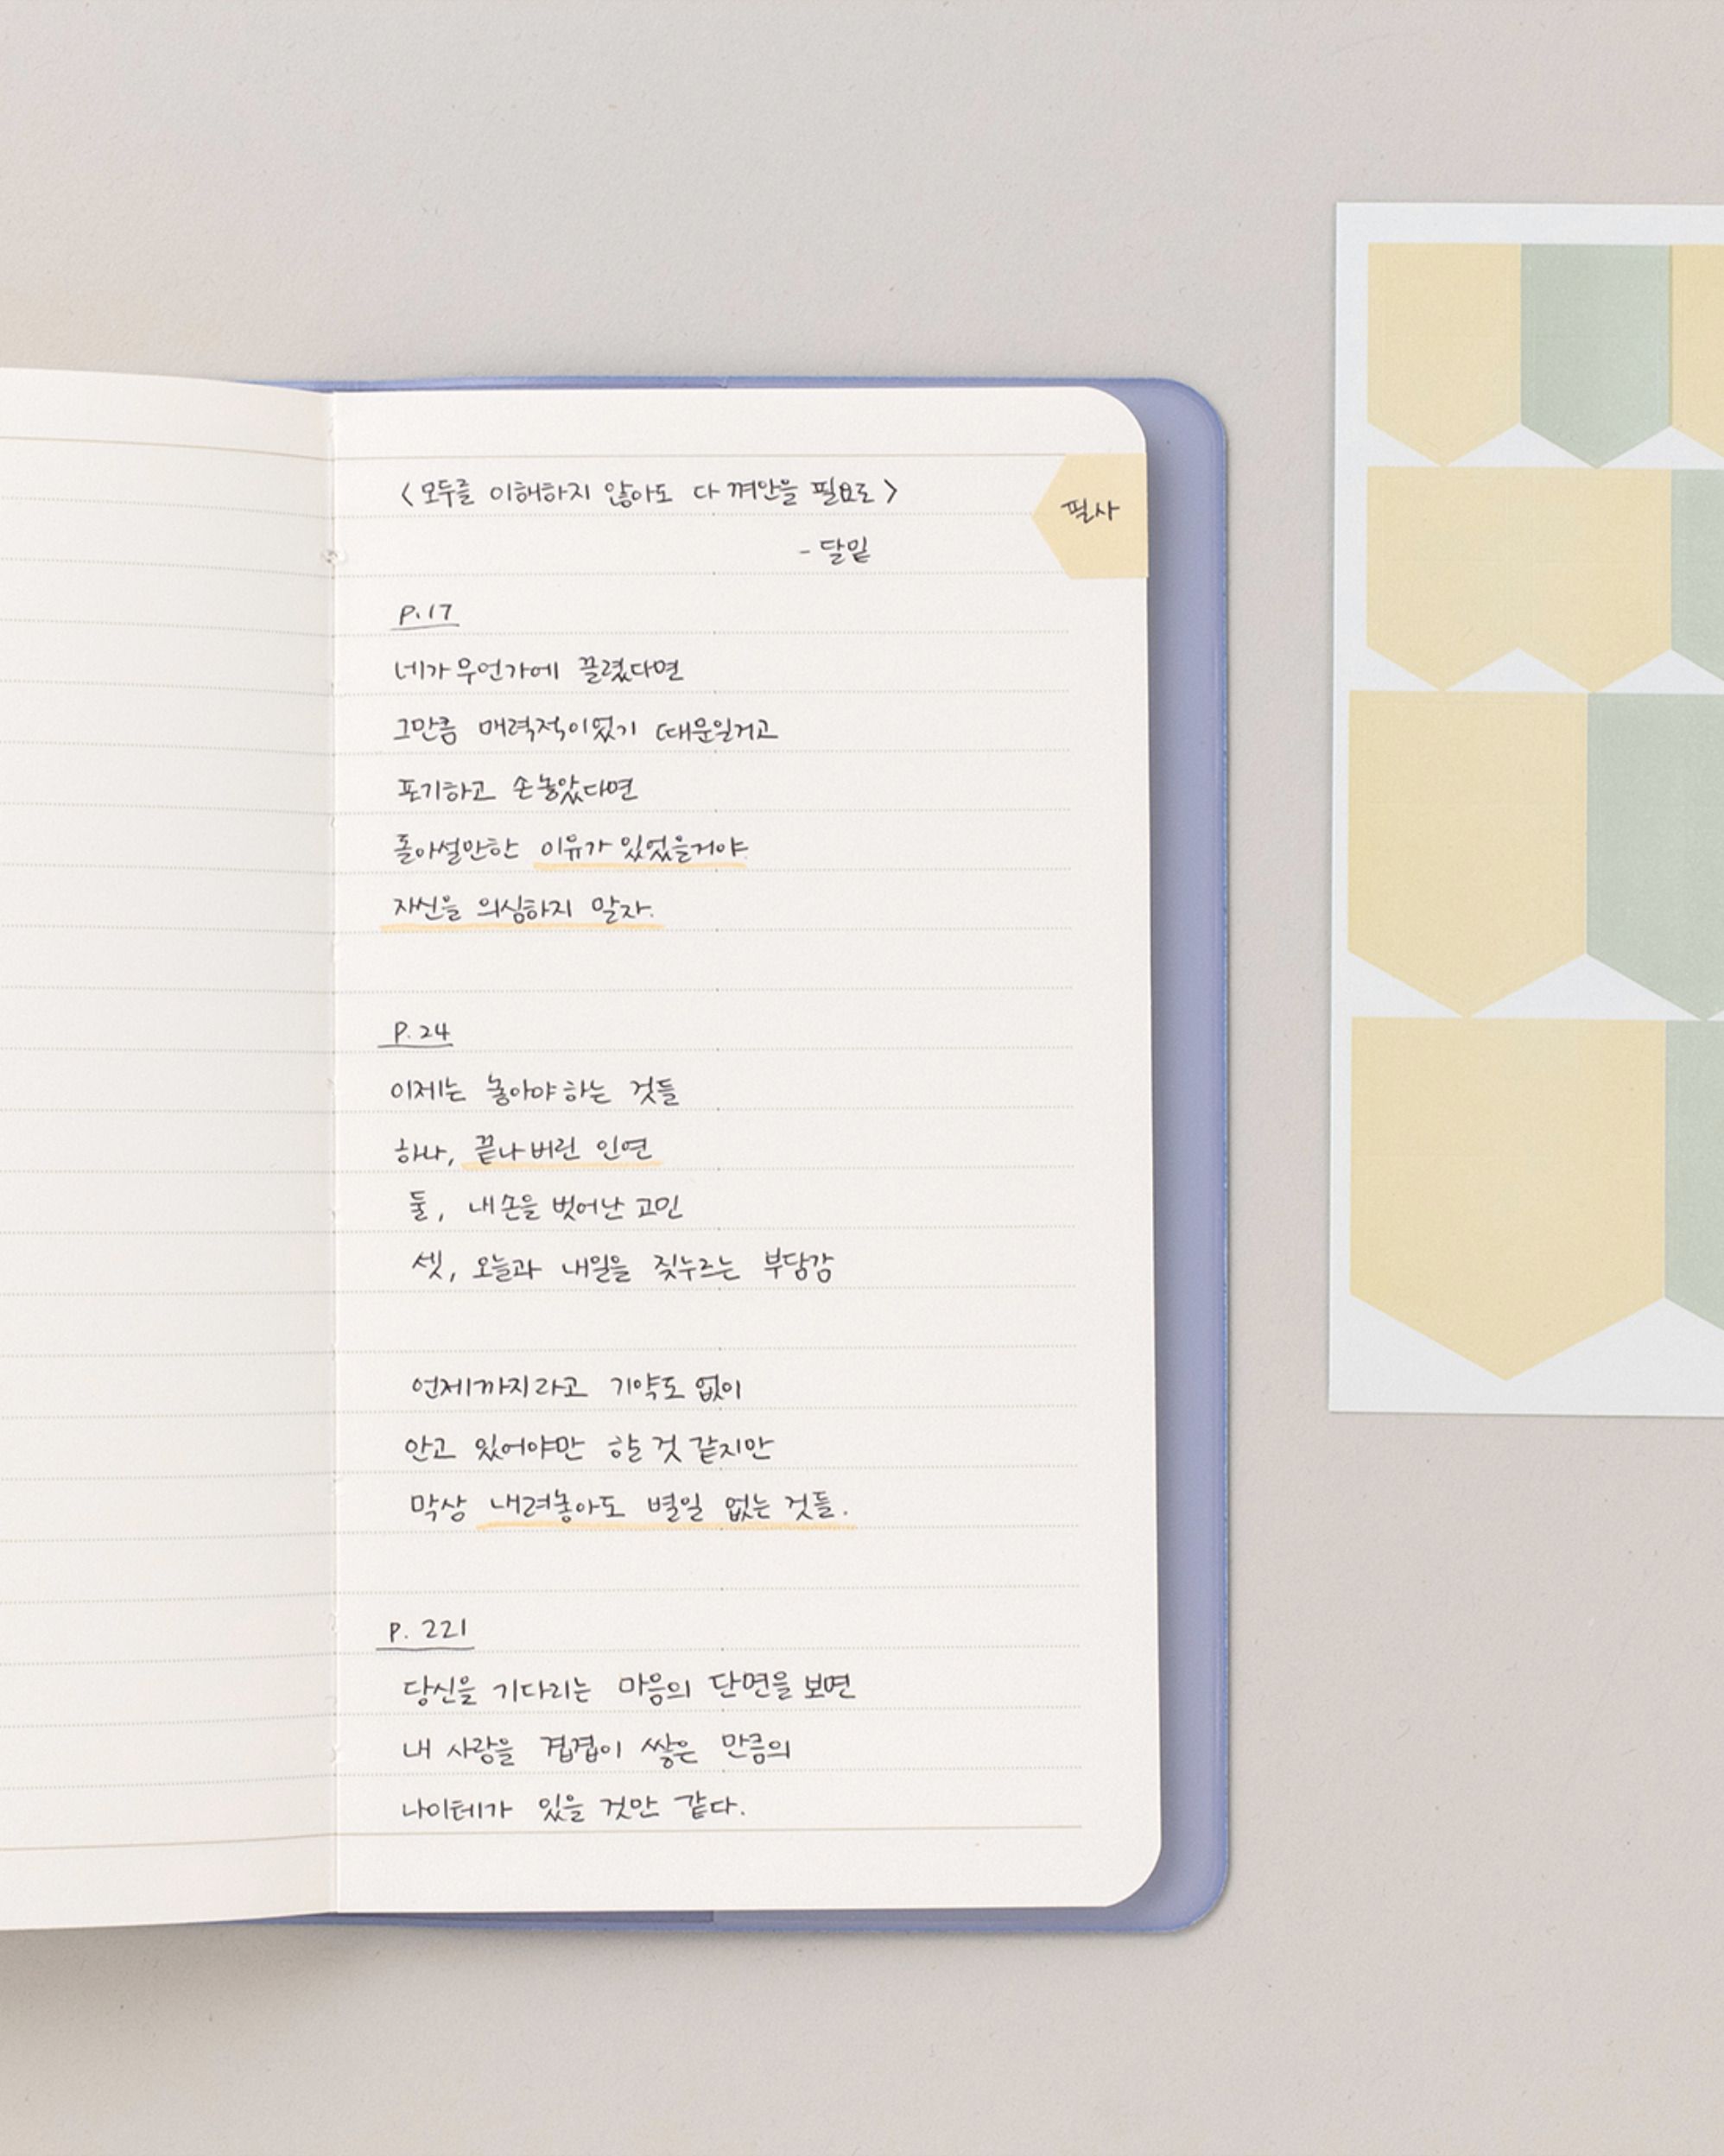 <모두를 이해하지 않아도 다 껴안을 필요로>
필사
- 달밑
P.17
네가 무언가에 끌렸다면
그만큼 매력적이었기 때문일거고
포기하고 손 놓았다면
돌아설만한 이유가 있었을거야
자신을 의심하지 말자.
P. 24
이제는 놓아야 하는 것들
하나, 끝나버린 인연
둘, 내 손을 벗어난 고민
셋, 오늘과 내일을 짓누르는 부당감
언제까지라고 기약도 없이
안고 있어야만 할 것 같지만
막상 내려놓아도 별일 없는 것들.
P. 221
당신을 기다리는 마음의 단면을 보면
내 사랑을 겹겹이 쌓은 만큼의
나이테가 있을 것만 같다.